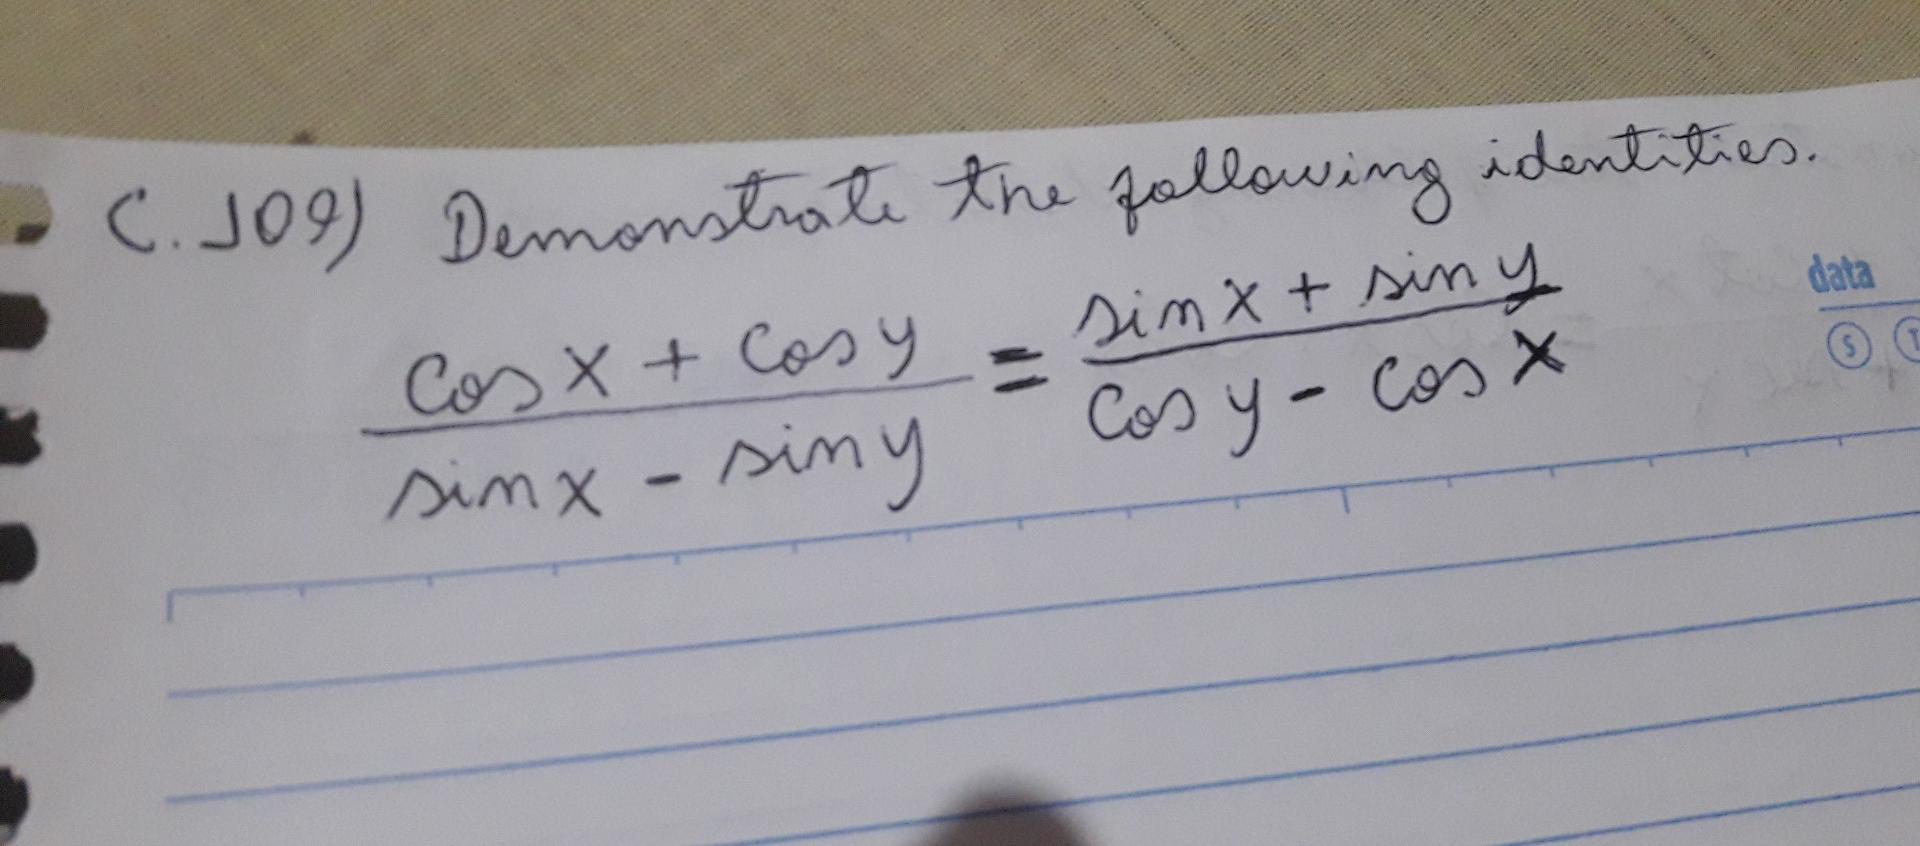 C. 109) Demonstrate the following identities.
cos x + cos y / sin x - sin y = sin x + sin y / cos y - cos x
data
S T